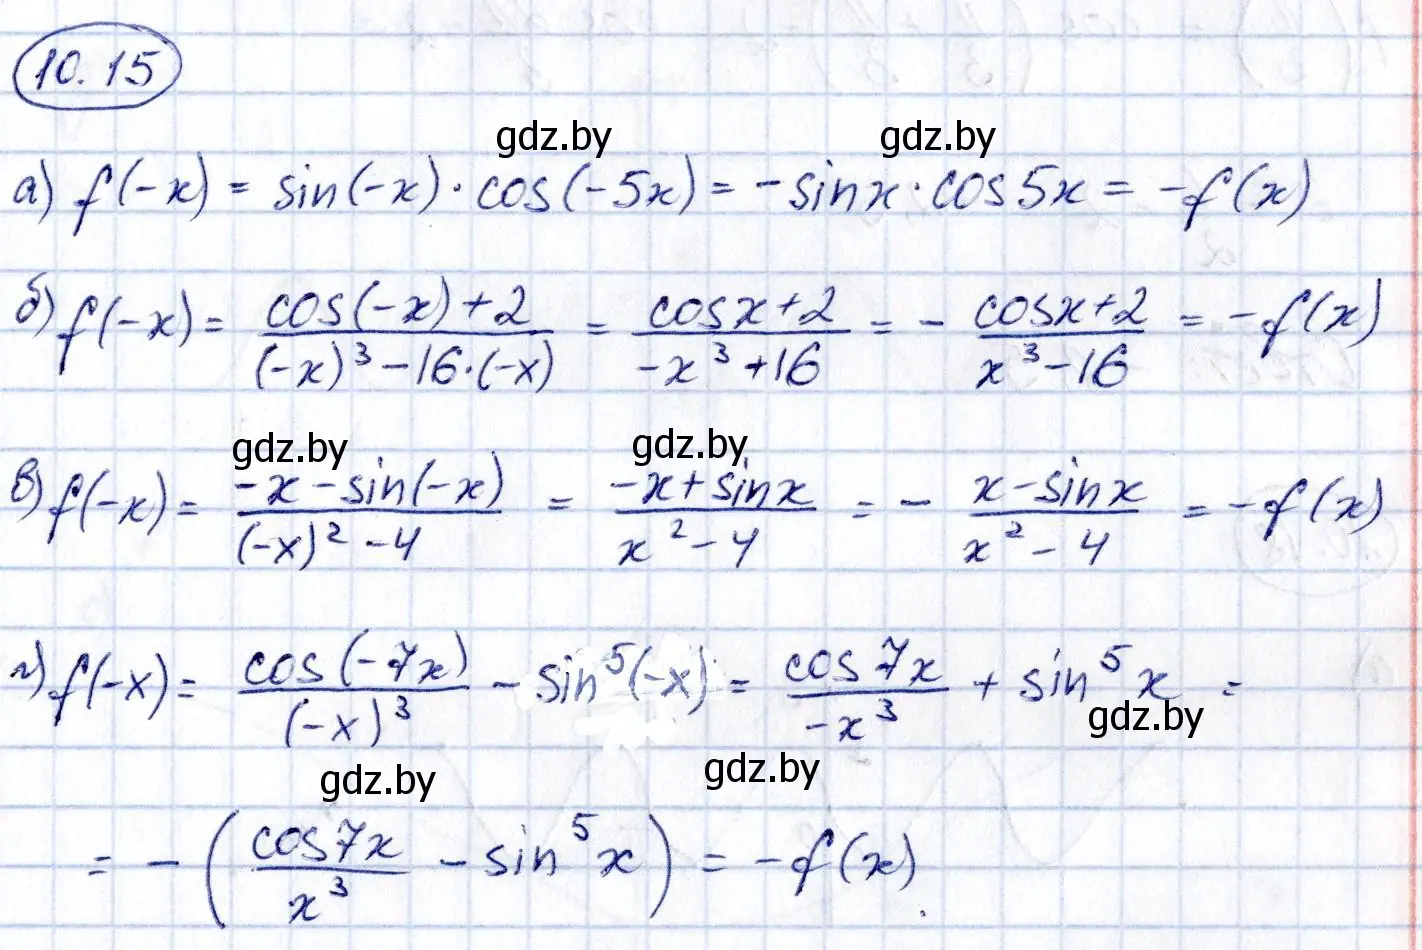 10.15
gdz.by gdz.by
а) f(-x) = sin(-x)·cos(-5x) = -sinx·cos5x = -f(x)
б) f(-x) = (cos(-x)+2)/((-x)³-16·(-x)) = (cosx+2)/(-x³+16) = - (cosx+2)/(x³-16) = -f(x)
gdz.by gdz.by
в) f(-x) = (-x-sin(-x))/((-x)²-4) = (-x+sinx)/(x²-4) = - (x-sinx)/(x²-4) = -f(x)
г) f(-x) = cos(-7x)/(-x)³ - sin⁵(-x) = cos7x/-x³ + sin⁵x =
gdz.by
gdz.by gdz.by
= -(cos7x/x³ - sin⁵x) = -f(x).